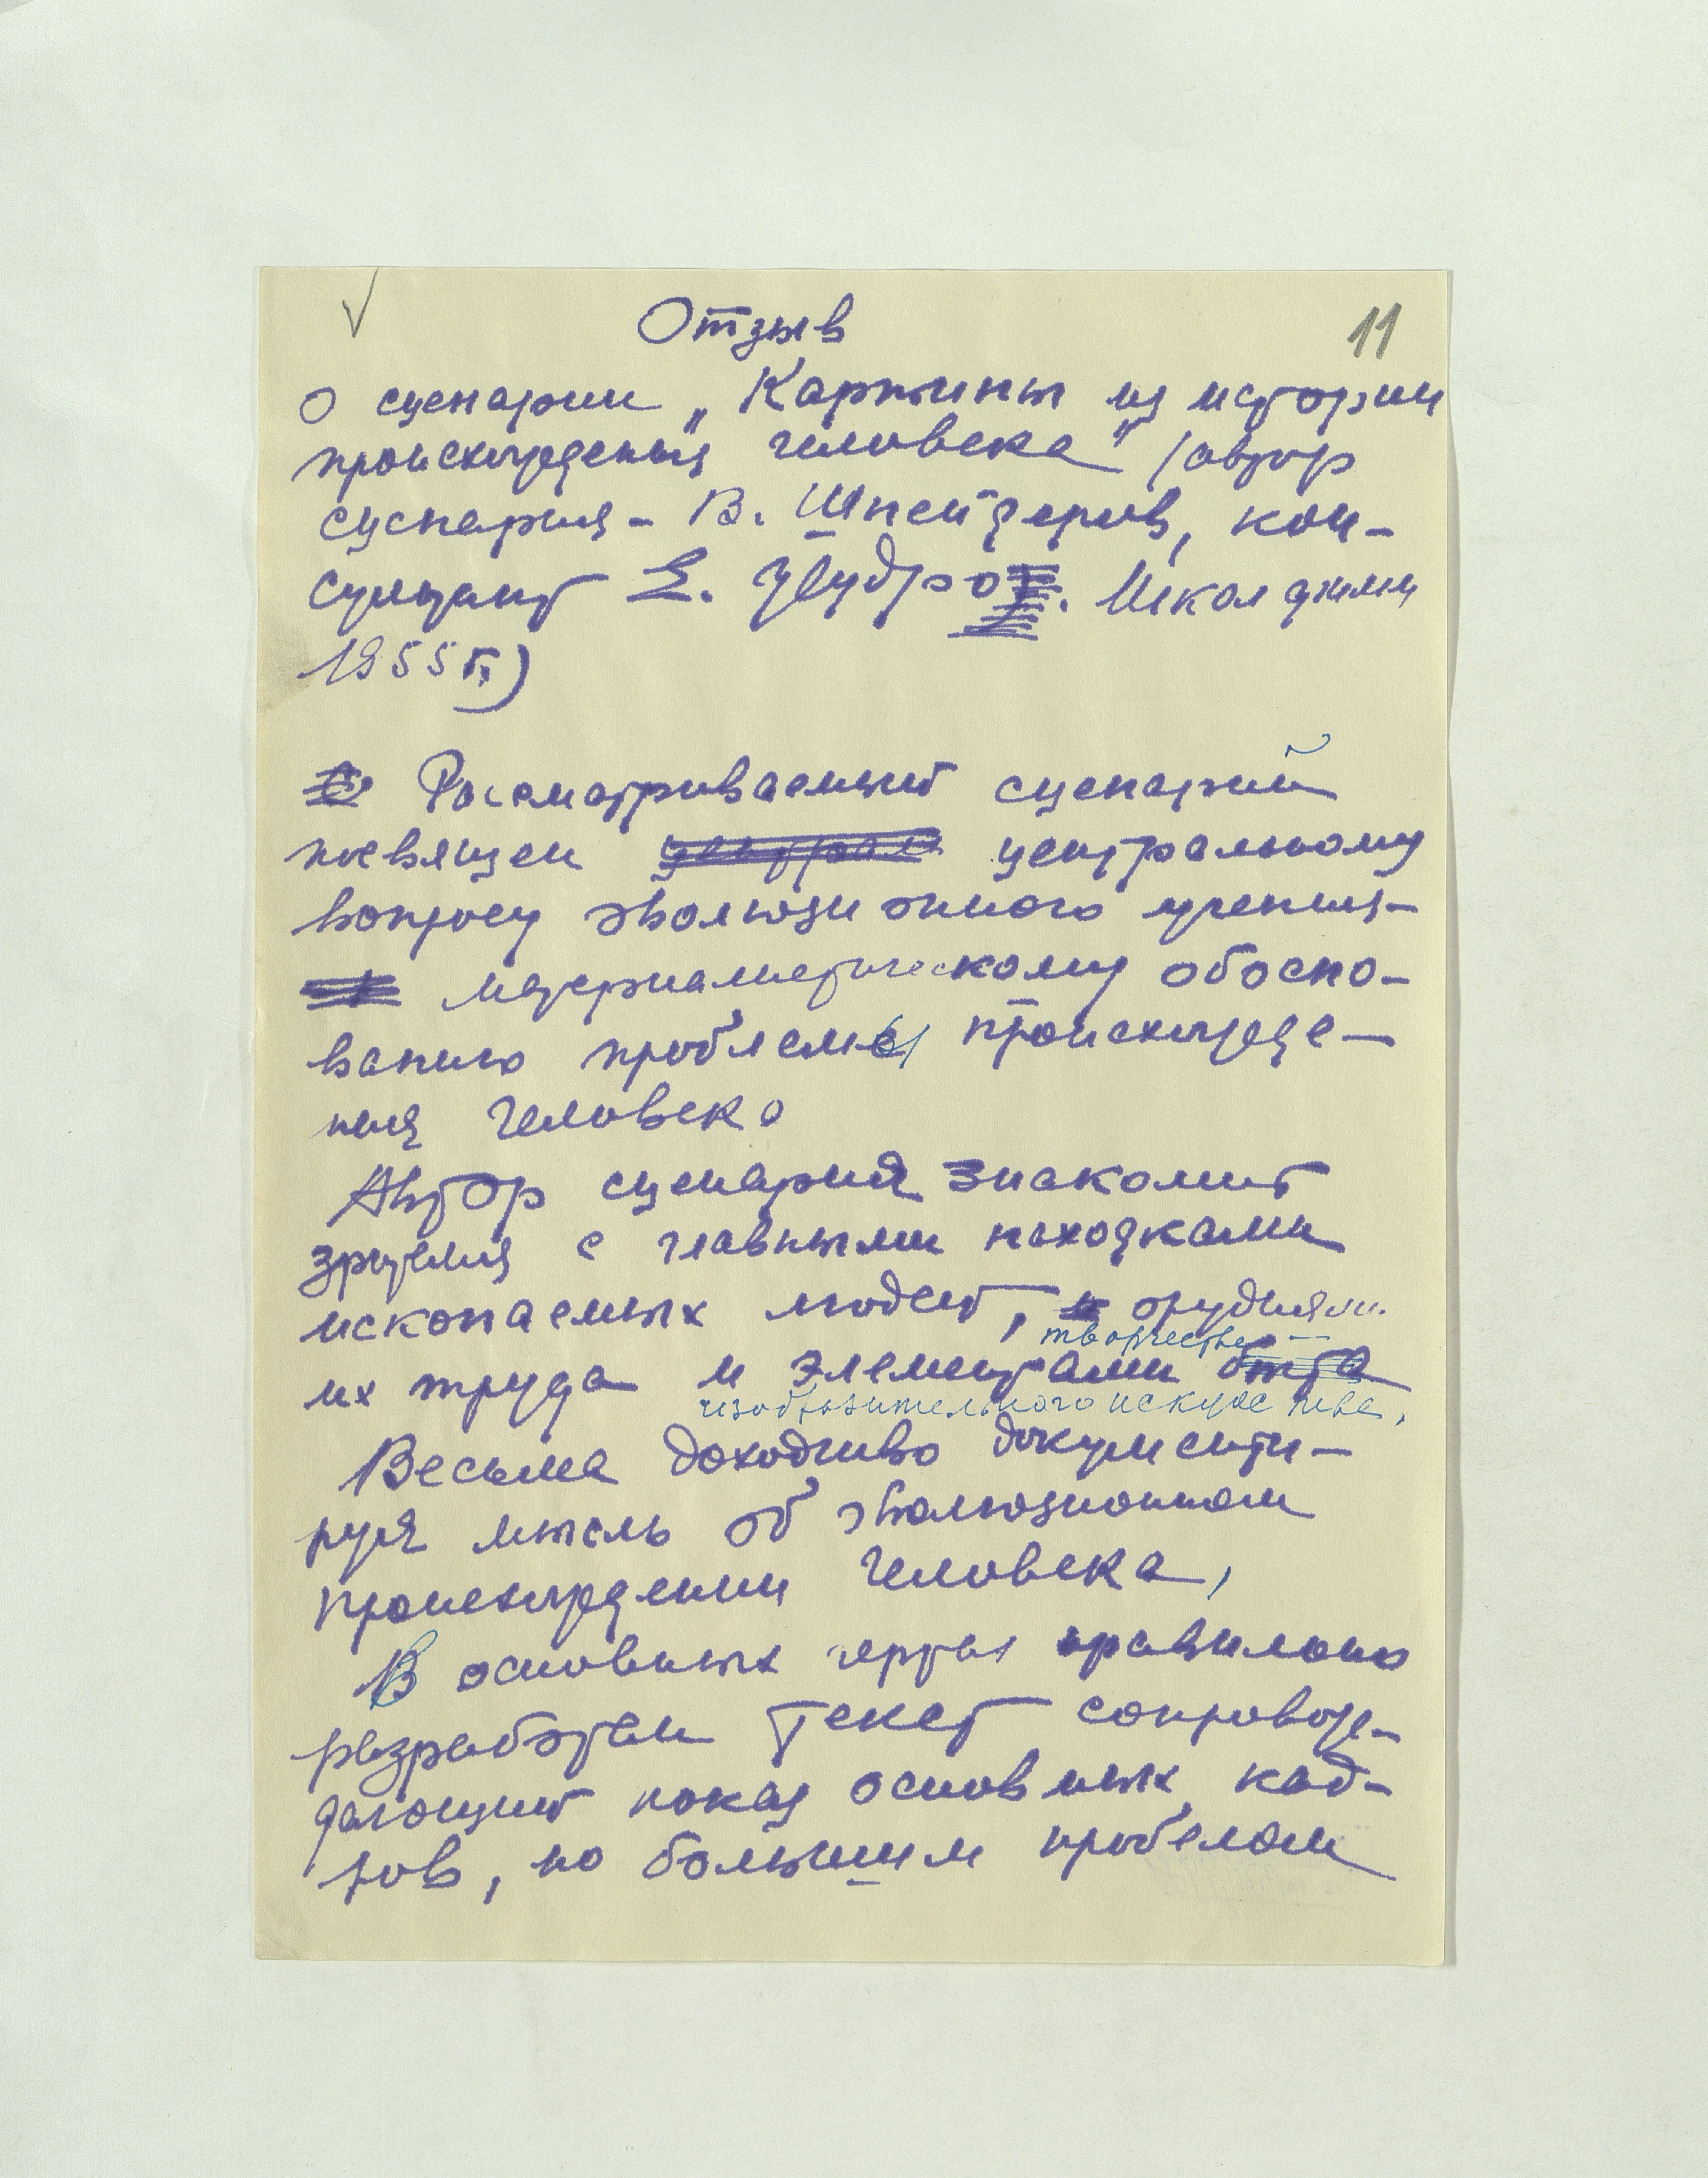 Отзыв
11
о сценарии „Картины из истории
происхождения человека" /автор
сценария - В. Шнейдеров, кон-
сультант Е.
Школфильм
1955 г.)
Рассматриваемый сценарий
посвящен централ центральному
вопросу эволюционного учения -
материалистическому обосно-
ванию проблемы происхожде-
ния человека
Автор сценария знакомит
зрителя с главными находками
ископаемых людей, и орудиями
творчества
их труда и элементами быта
изобразительного искусства,
Весьма доходчиво документи-
руя мысль об эволюционном
происхождении человека,
В основных чертах правильно
разработан текст сопровож-
дающий показ основных кад-
ров, но большим пробелом